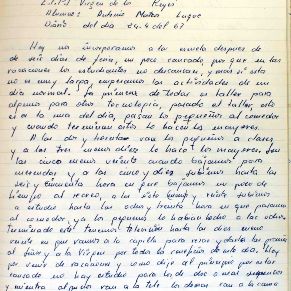 Virgen de la Reyes
Alumno: Antonio Mateo Luque
Diario del dia 24.4 del 67
Hoy nos incorporamos a la escuela después de
de seis dias de feria, un poco cansado, por que en las
vacaciones los estudiantes no descansan, y casi si esta
no es muy larga, empezamos las actividades de un
dia normal. La primera de todas es taller para
algunos para otros tecnologia, pasado el taller, esto
es a la una del dia, pasan los pequeños al comedor
y cuando terminan estos lo hacen los mayores.
A las dos y treinta van los pequeños a clases
y a las tres menos diez lo hacen los mayores. Son
las cinco menos veinte cuando bajamos para
merendar y a las cinco y diez subimos hasta las
seis y cincuenta hora en que bajamos un poco de
tiempo al recreo, a las siete y veinte subimos
a estudio hasta las ocho y treinta hora en que pasamos
al comedor, ya los pequeños lo habian hecho a las ocho.
Terminado este tenemos televisión hasta las diez menos
veinte en que vamos a la capilla para rezar y darle las gracias
al Señor y a la Virgen por todo lo de este dia. Hoy
por venir de vacaciones y como dije al principio por estar
cansado no hay estudio para los de ocho o nueve
y mientras algunos van a la tele los demas van a la cama